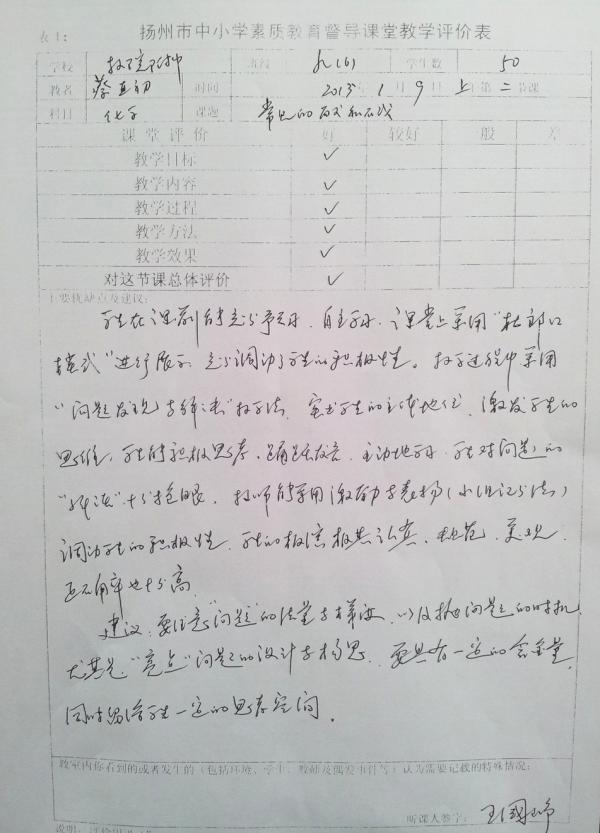 表1：
扬州市中小学素质教育督导课堂教学评价表
学校 教院附中 班级 九(6) 学生数 50
教者 蔡 时间 2013年1月9日上午第二节课
科目 化学 课题 常见的
课堂评价 好 较好 一般 差
教学目标 ✓
教学内容 ✓
教学过程 ✓
教学方法 ✓
教学效果 ✓
对这节课总体评价 ✓
主要优缺点及建议：
学生在课前能充分预习、自主学习，课堂上采用“杜郎口
模式”进行展示，充分调动了学生的积极性。教学过程中采用
“问题发现与解决”教学法，突出学生的主体地位，激发学生的
思维，学生能积极思考，踊跃发言，主动地学习，学生对问题的
十分抢眼，教师能采用激励与表扬（小组记分法）
调动学生的积极性，学生的板演极其认真、规范、美观，
正确率也十分高。
建议：要注意“问题”的质量与梯度，以及抛问题的时机，
尤其是“亮点”问题的设计与构思，要具有一定的含金量，
同时留给学生一定的思考空间。
教室内你看到的或者发生的（包括环境、学生、教师及偶发事件等）认为需要记载的特殊情况：
听课人签字：王國
说明：